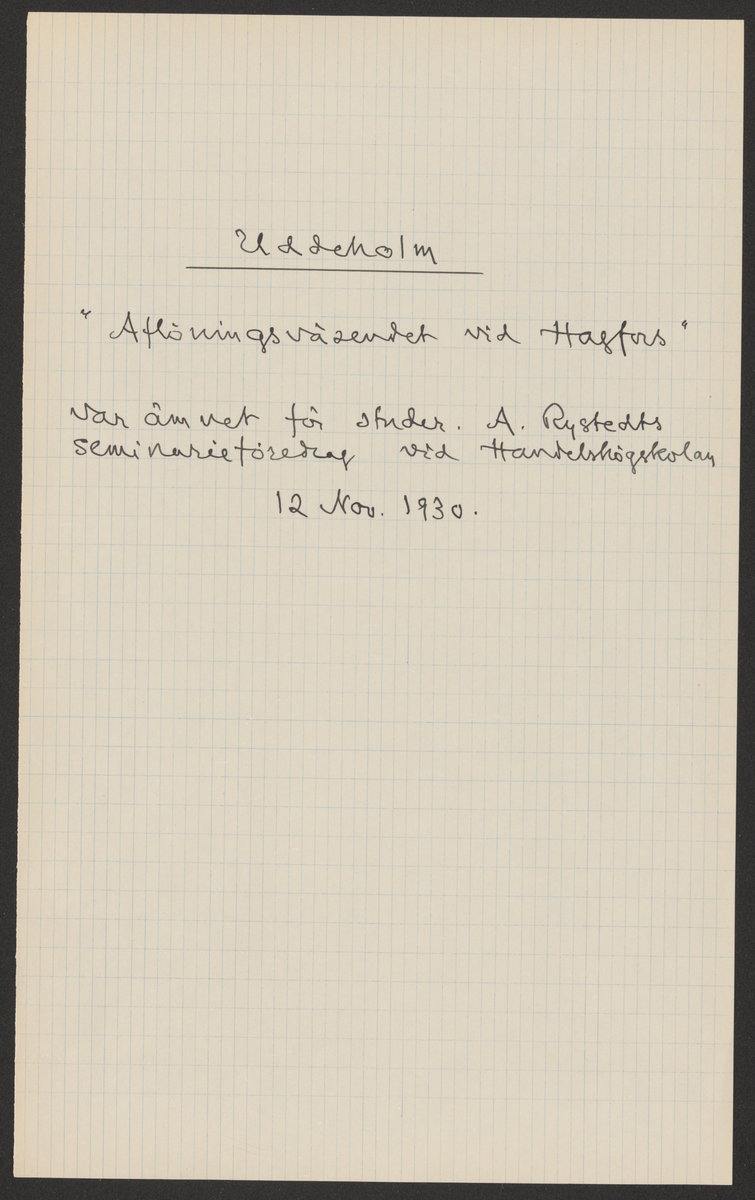 Uddeholm
"Aflöningsväsendet vid Hagfors"
var ämnet för studer. A. Rystedts
seminarieföredrag vid Handelshögskolan
12 Nov. 1930.